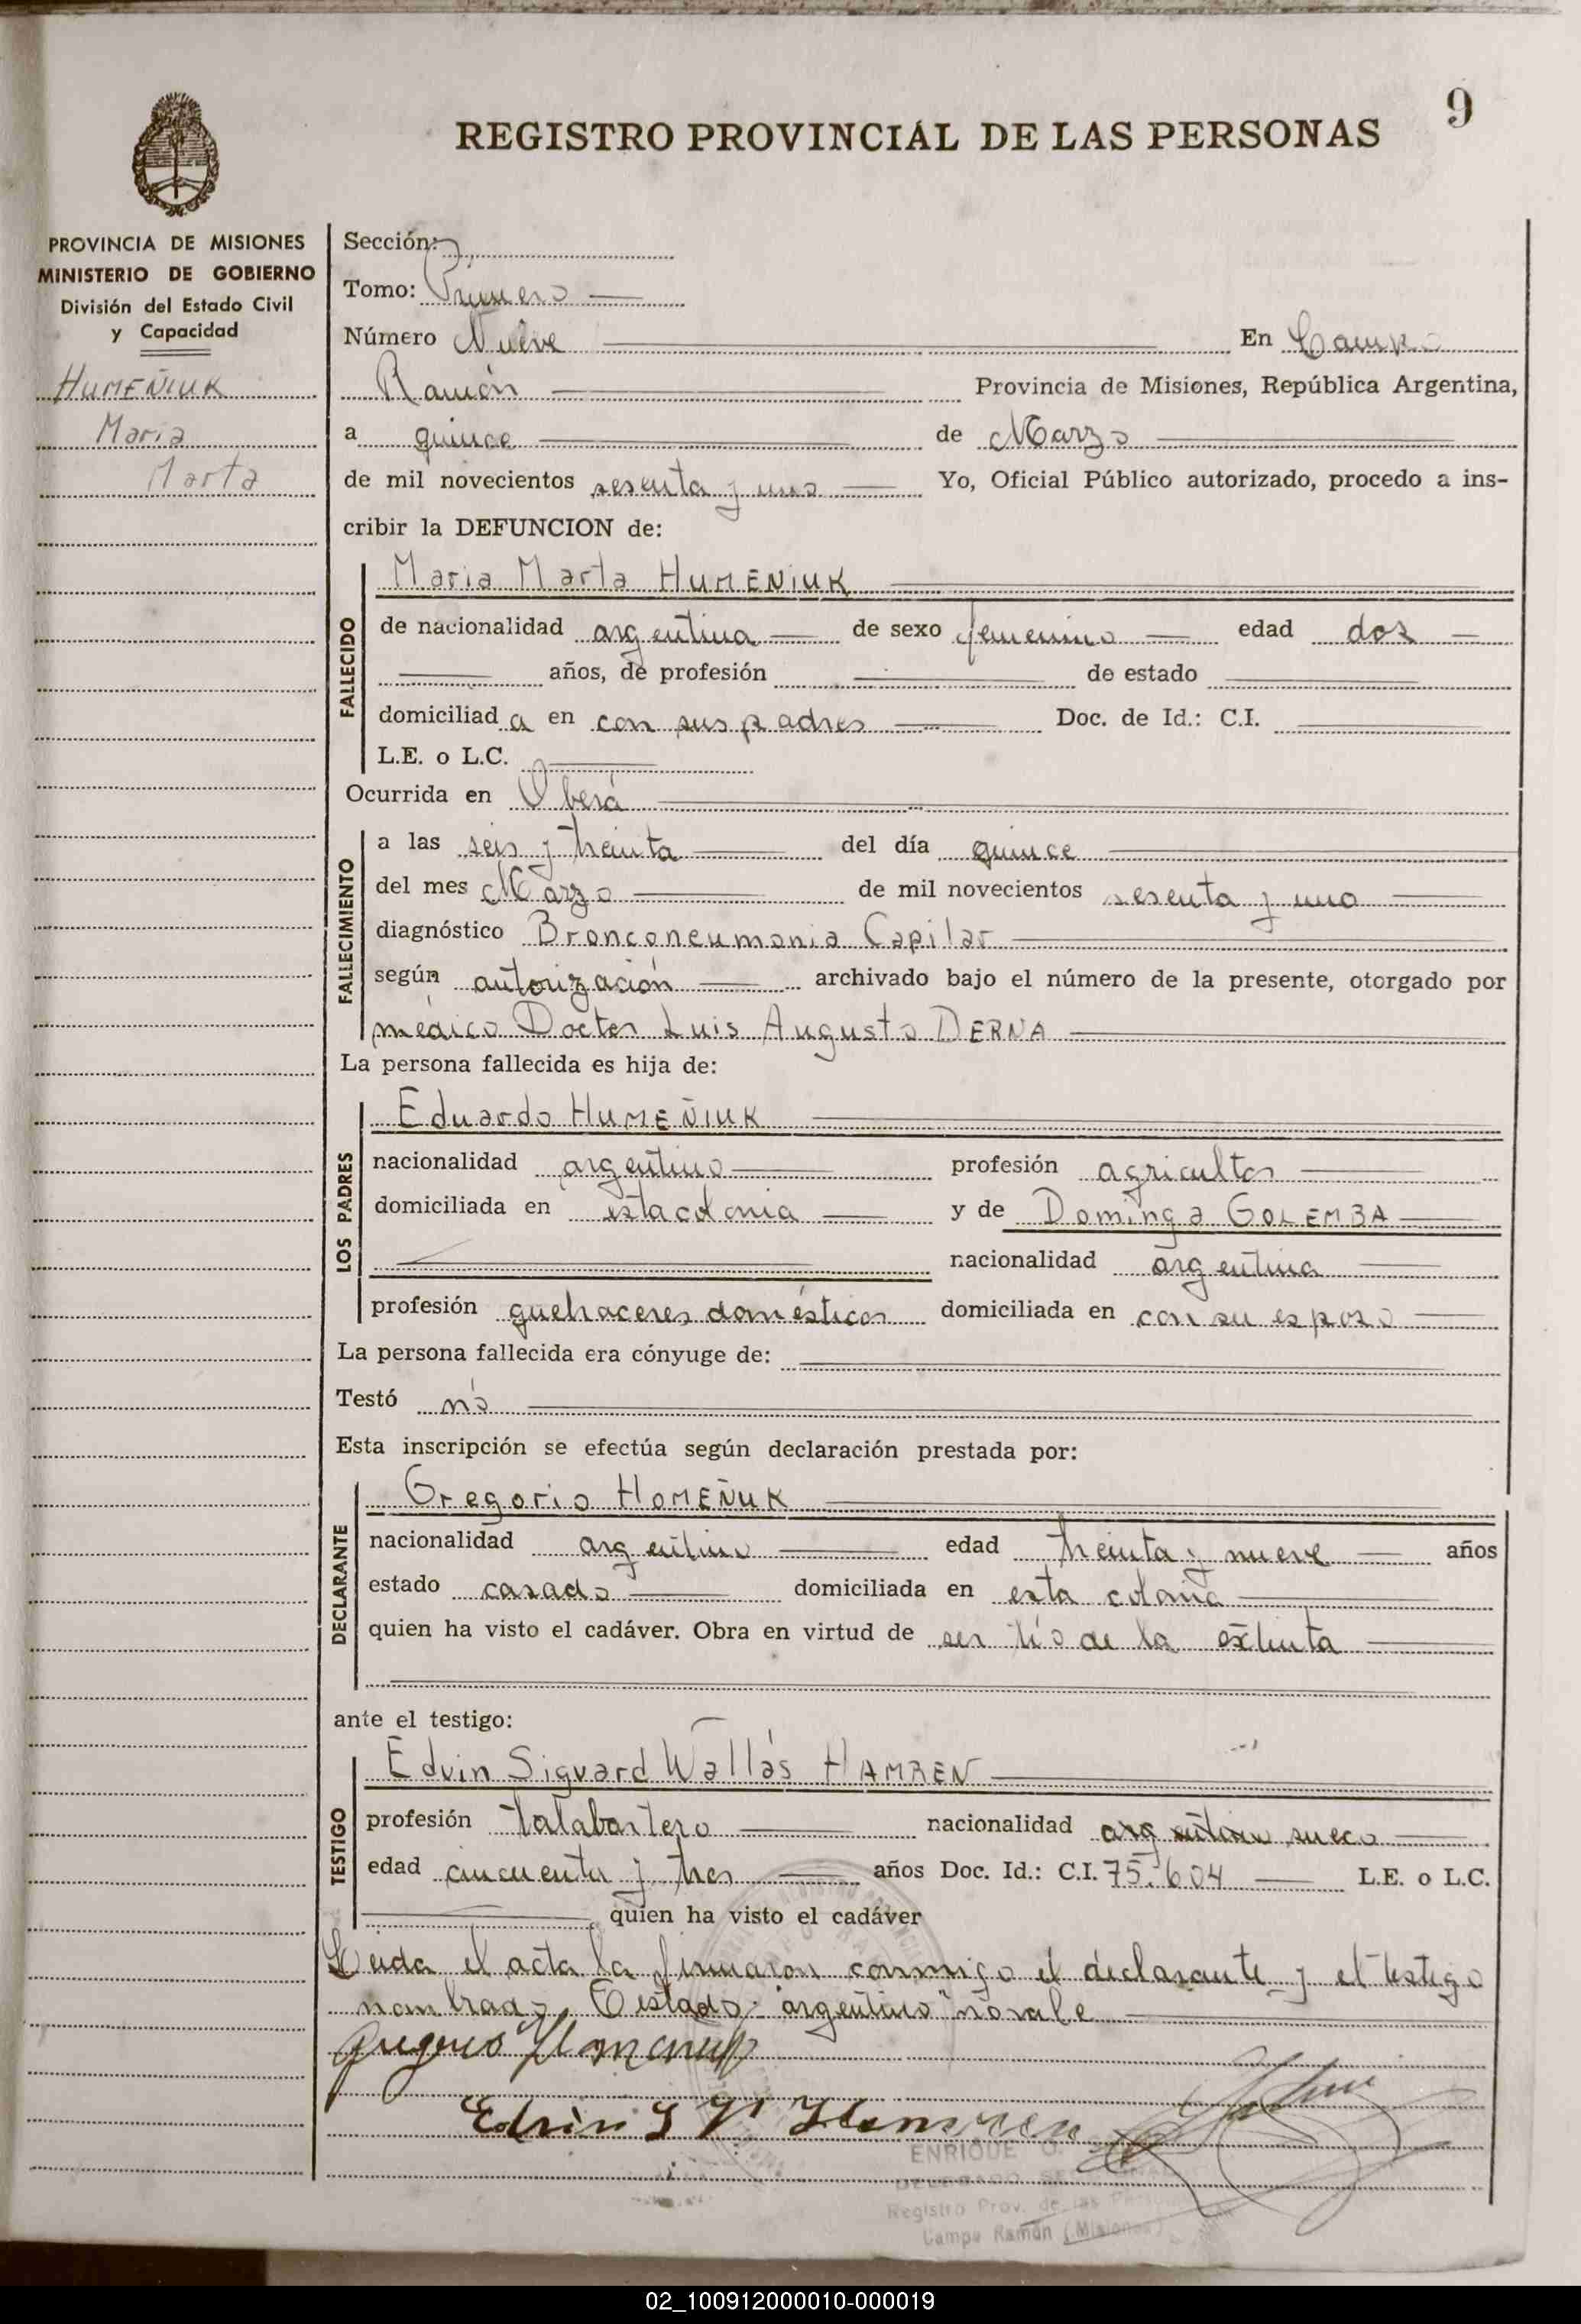 9
REGISTRO PROVINCIAL DE LAS PERSONAS
PROVINCIA DE MISIONES
MINISTERIO DE GOBIERNO
División del Estado Civil
y Capacidad
HUMEÑIUK
Maria
Marta
Sección:
Tomo: Primero
Número Nueve En Campo
Ramón Provincia de Misiones, República Argentina,
a quince de Marzo
de mil novecientos sesenta y uno Yo, Oficial Público autorizado, procedo a ins-
cribir la DEFUNCION de:
Maria Marta HUMEÑIUK
FALLECIDO
de nacionalidad argentina de sexo femenino edad dos
años, de profesión de estado
domiciliad a en con sus padres Doc. de Id.: C.I.
L.E. o L.C.
Ocurrida en Oberá
FALLECIMIENTO
a las seis y treinta del día quince
del mes Marzo de mil novecientos sesenta y uno
diagnóstico Bronconeumonia Capilar
según autorización archivado bajo el número de la presente, otorgado por
médico Doctor Luis Augusto DERNA
La persona fallecida es hija de:
LOS PADRES
Eduardo HUMEÑIUK
nacionalidad argentino profesión agricultor
domiciliada en esta colonia y de Dominga GOLEMBA
nacionalidad argentina
profesión quehaceres domésticos domiciliada en con su esposo
La persona fallecida era cónyuge de:
Testó nó
Esta inscripción se efectúa según declaración prestada por:
DECLARANTE
Gregorio HOMEÑUK
nacionalidad argentino edad treinta y nueve años
estado casado domiciliada en esta colonia
quien ha visto el cadáver. Obra en virtud de ser tío de la extinta
ante el testigo:
TESTIGO
Edvin Sigvard Wallás HAMREN
profesión talabartero nacionalidad argentino sueco
edad cincuenta y tres años Doc. Id.: C.I. 75.604 L.E. o L.C.
quien ha visto el cadáver
Leida el acta la firmaron conmigo el declarante y el testigo
nombrado, Testado: "argentino" no vale
Edvin S W Hamren
ENRIQUE O.
Registro Prov. de las
Campo Ramón (Misiones)
02_100912000010-000019